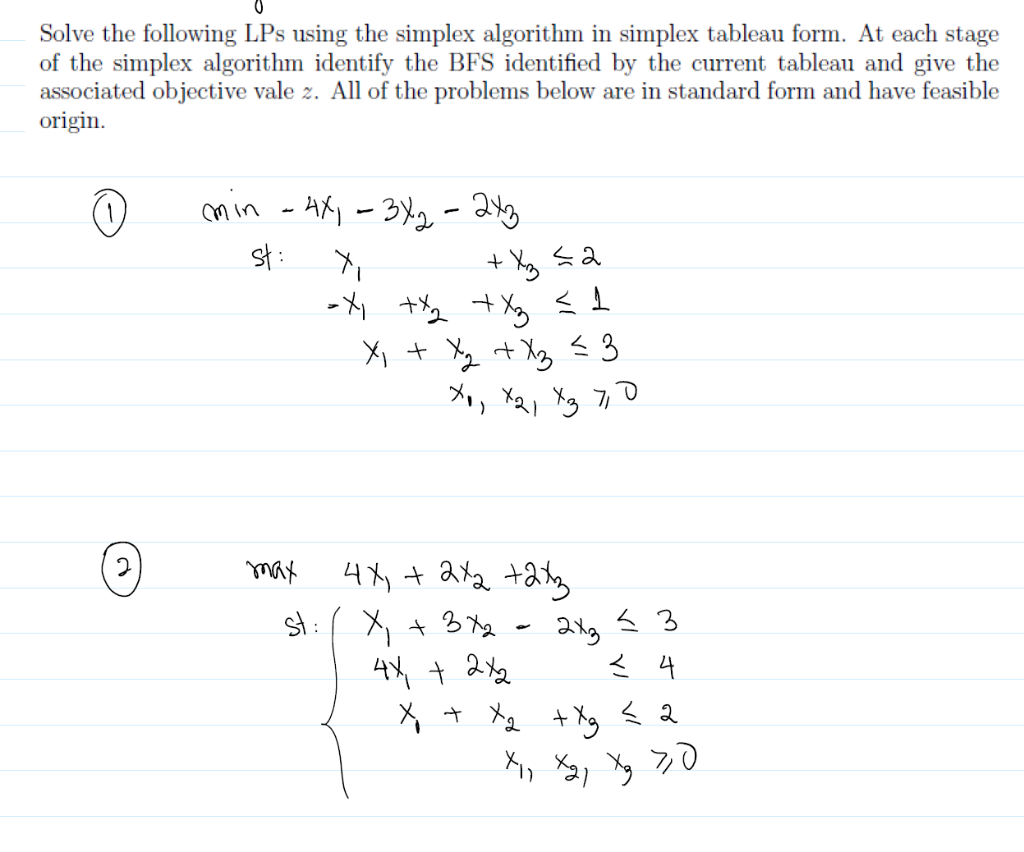 Solve the following LPs using the simplex algorithm in simplex tableau form. At each stage
of the simplex algorithm identify the BFS identified by the current tableau and give the
associated objective vale z. All of the problems below are in standard form and have feasible
origin.
① min - 4x₁ - 3x₂ - 2x₃
st: x₁ + x₃ ≤ 2
-x₁ + x₂ + x₃ ≤ 1
x₁ + x₂ + x₃ ≤ 3
x₁, x₂, x₃ ≥ 0
② max 4x₁ + 2x₂ + 2x₃
st: x₁ + 3x₂ - 2x₃ ≤ 3
4x₁ + 2x₂ ≤ 4
x₁ + x₂ + x₃ ≤ 2
x₁, x₂, x₃ ≥ 0